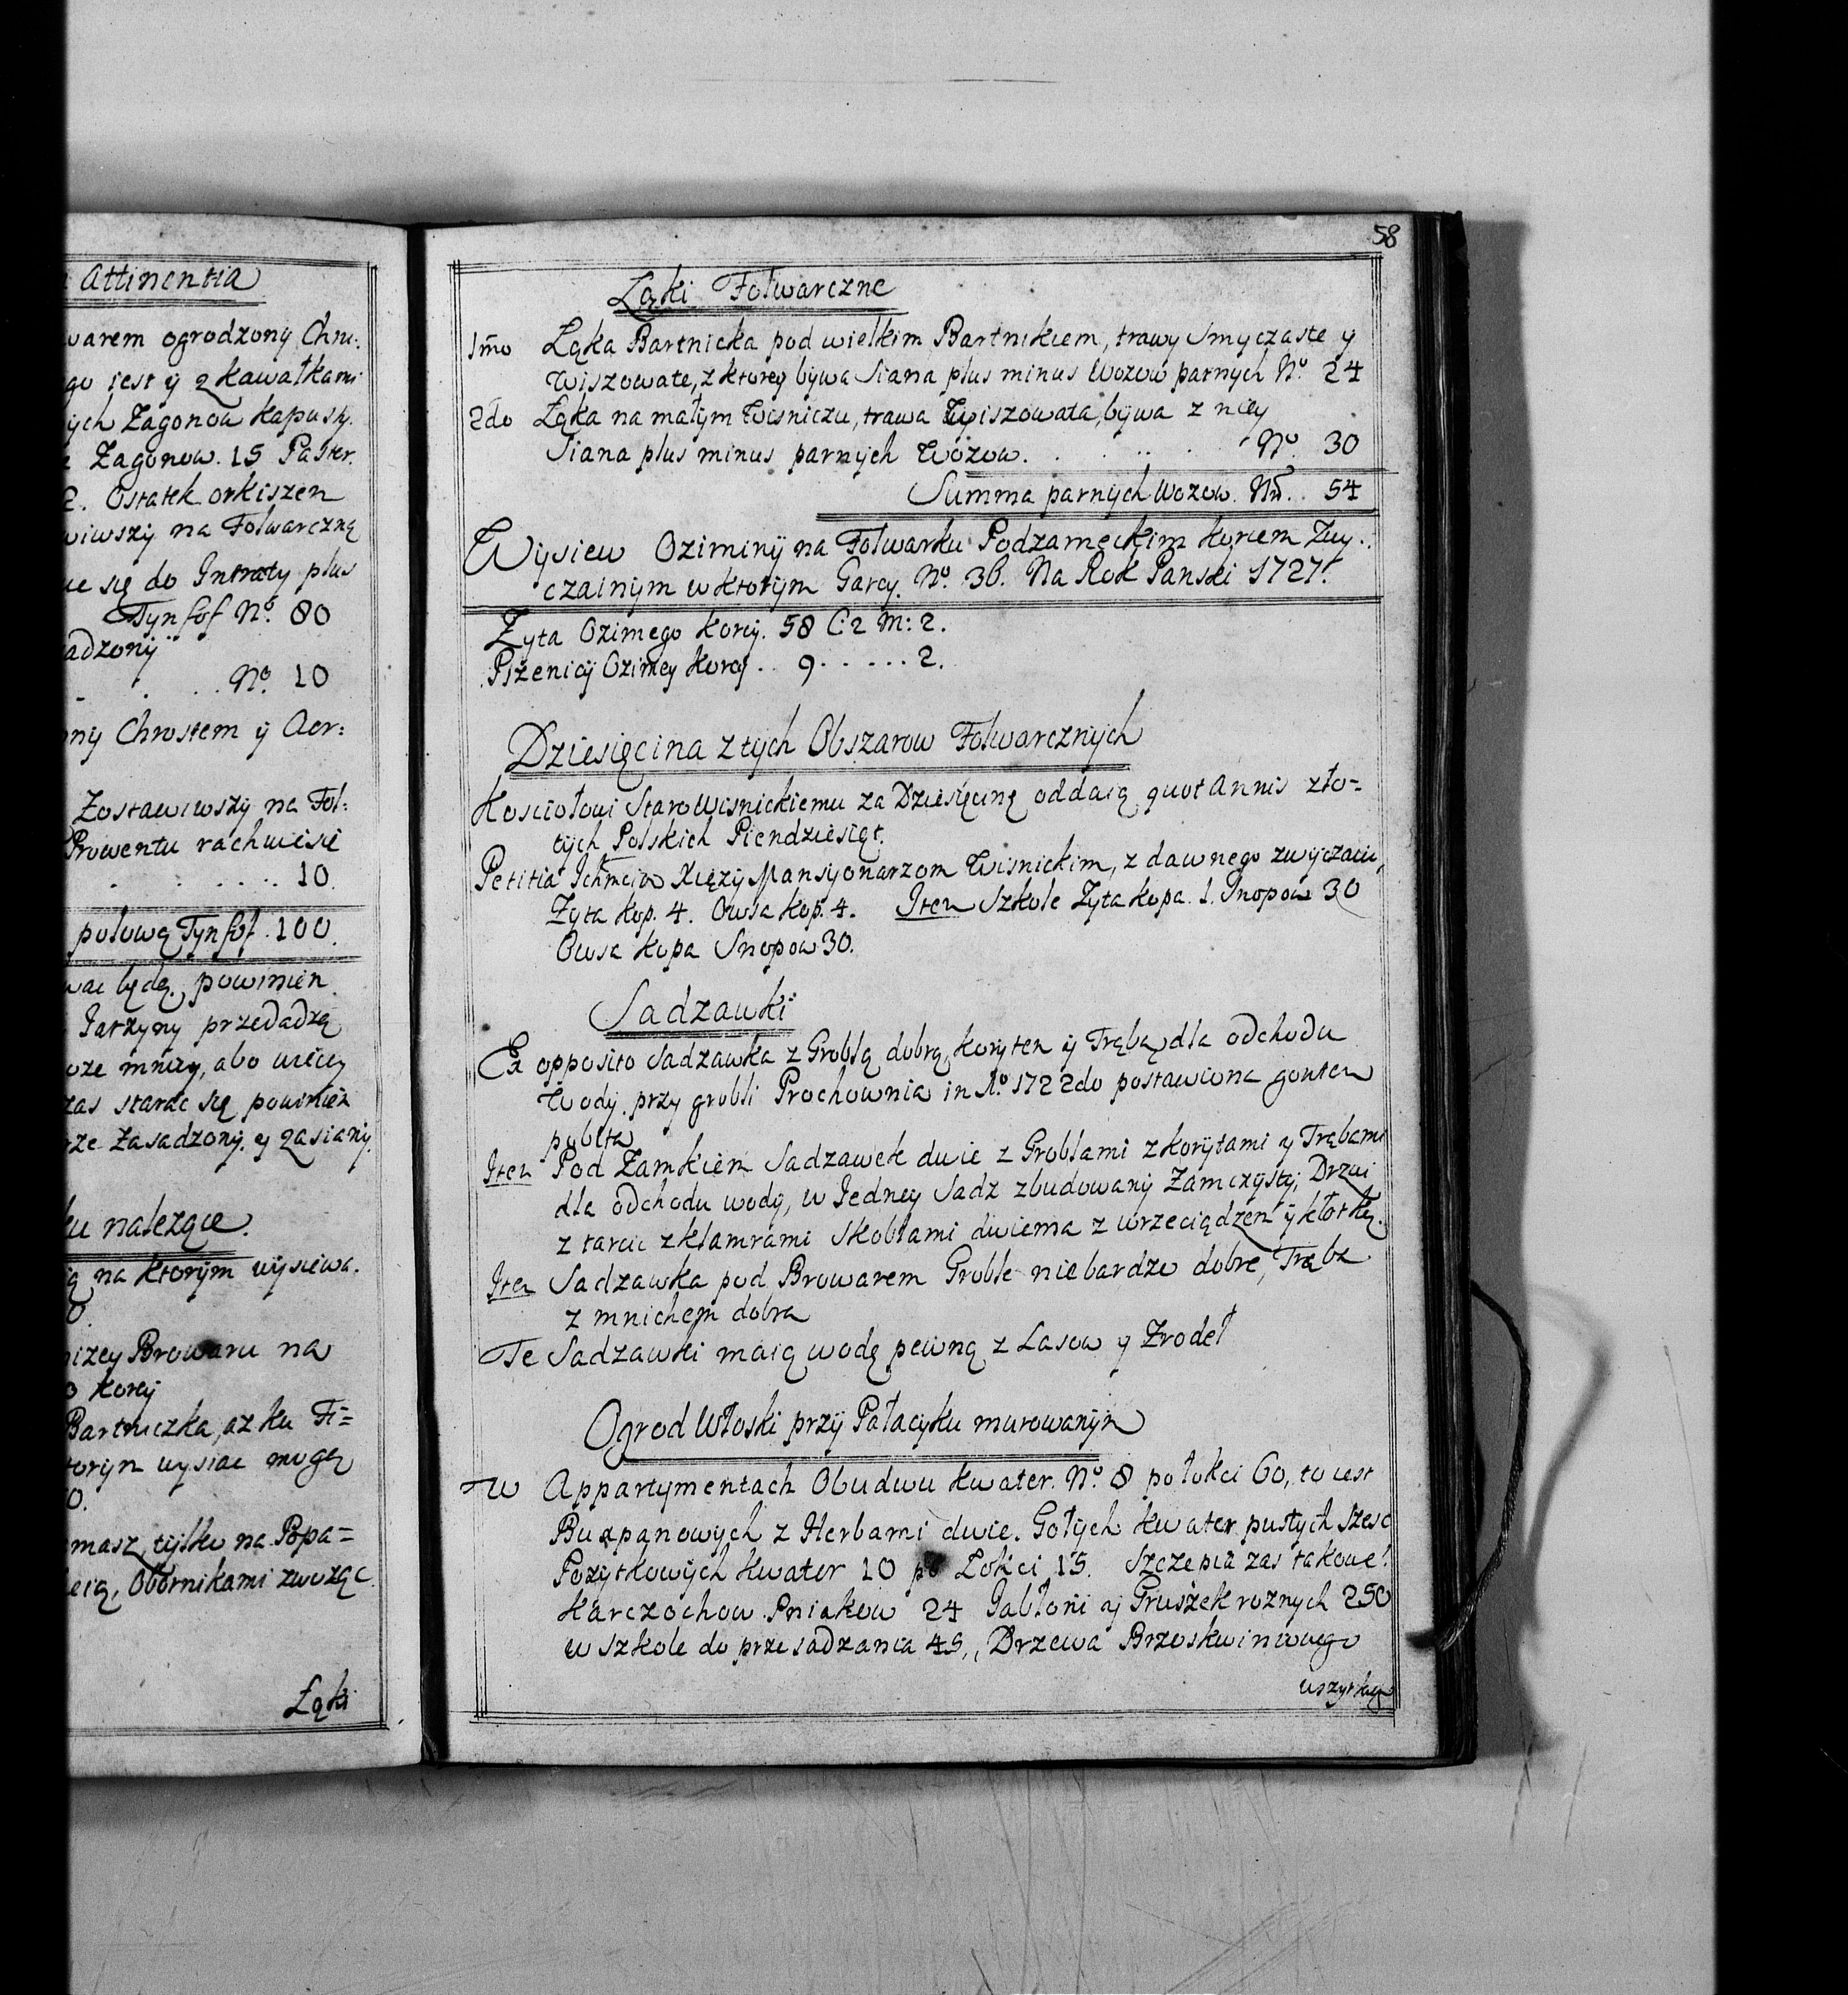 Attinentia
warem ogrodzony Chru:
go iest y z kawałkami
ych Zagonow kapusty.
Zagonow. 15 Paster.
2. Ostatek orkiszen
wiwszy na Folwarczną
ue się do Intraty plus
Tynfof No. 80
adzony
No. 10
ony Chrostem y Acr:
Zostawiwszy na Fol:
Prowentu rachuie się
10.
połowę Tynfof. 100.
wac będę, powinien
Jarzyny przedadzą
oze mniey, abo więcey
zas starac się powinien
rze zasadzony y zasiany.
ku nalezące.
ią na ktorym wysiewa.
0.
nizey Browaru na
o Korcy
Bartniczka, az ku Fi=
torym wysiac mogą
0.
masz, tylko na Popa=
ecią, Obornikami zwoząc.
Łąki
58
Łąki Folwarczne
1mo Łąka Bartnicka pod wielkim Bartnikiem, trawy Smyczaste y
Wiszowate, z ktorey bywa Siana plus minus Wozow parnych No. 24
2do Łąka na małym Wisniczu, trawa Wiszowata, bywa z niey
Siana plus minus parnych Wozow. . . . . . No. 30
Summa parnych Wozow. No. . 54
Wysiew Oziminy na Folwarku Podzameckim Korcem Zwy:
czainym w ktorym Garcy. No. 36. Na Rok Panski 1727.
Zyta Ozimego Korcy. 58 C: 2 M: 2.
Pszenicy Ozimey Korcy . . 9 . . . . . 2.
Dziesięcina z tych Obszarow Folwarcznych
Kosciołowi Staro Wisnickiemu za Dziesięcinę oddaią quot Annis zło=
tych Polskich Piendziesiąt.
Petitia Ichmciow Xięzy Mansyonarzom Wisnickim, z dawnego zwyczaiu,
Zyta Kop. 4. Owsa Kop. 4. Item Szkole Zyta Kopa. 1. Snopow 30
Owsa Kopa Snopow 30.
Sadzawki
Ex opposito Sadzawka z Groblą dobrą, Korytem y Trąbą dla odchodu
Wody. przy grobli Prochownia in Ao. 1722do postawiona gontem
pobita
Item Pod Zamkiem Sadzawek dwie z Groblami z korytami y Trąbami
dla odchodu wody, w Jedney Sadz zbudowany Zamczysty, Drzwi
z tarcic z klamrami Skoblami dwiema z wrzeciądzem y kłotką.
Item Sadzawka pod Browarem Groble nie bardzo dobre, Trąba
z mnichem dobra
Te Sadzawki maią wodę pewną z Lasow y Zrodeł
Ogrod Włoski przy Pałacyku murowanym
W Appartymentach Obudwu Kwater. No. 8 po łokci 60, to iest
Buxpanowych z Herbami dwie. Gołych Kwater pustych szesc
Pozytkowych Kwater 10 po Łokci 15. Szczepia zas takowe:
Karczochow Pniakow 24 Jabłoni y Gruszek roznych 250
w szkole do przesadzania 45,, Drzewa Brzoskwiniowego
wszytkiego